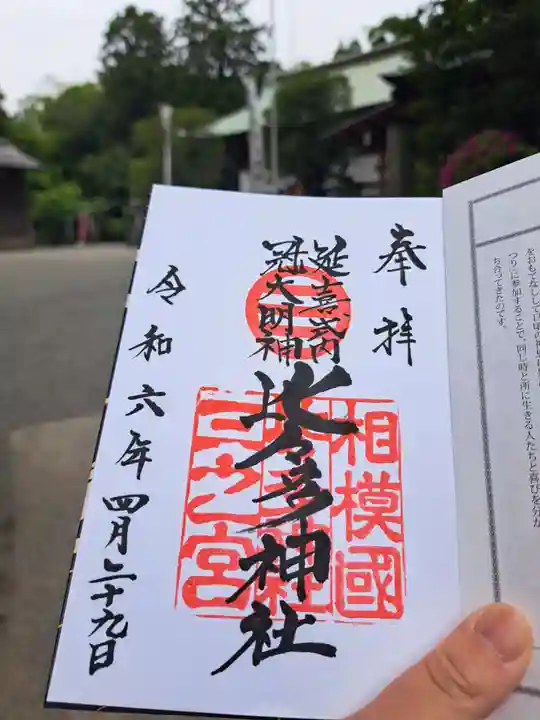 奉拝
延喜式内
冠大明神
比々多神社
相模國
三之宮
令和六年四月二十九日
つりに参加することで、同じ時と所に生きる人たちと喜びを分か
ち合ってきたのです。